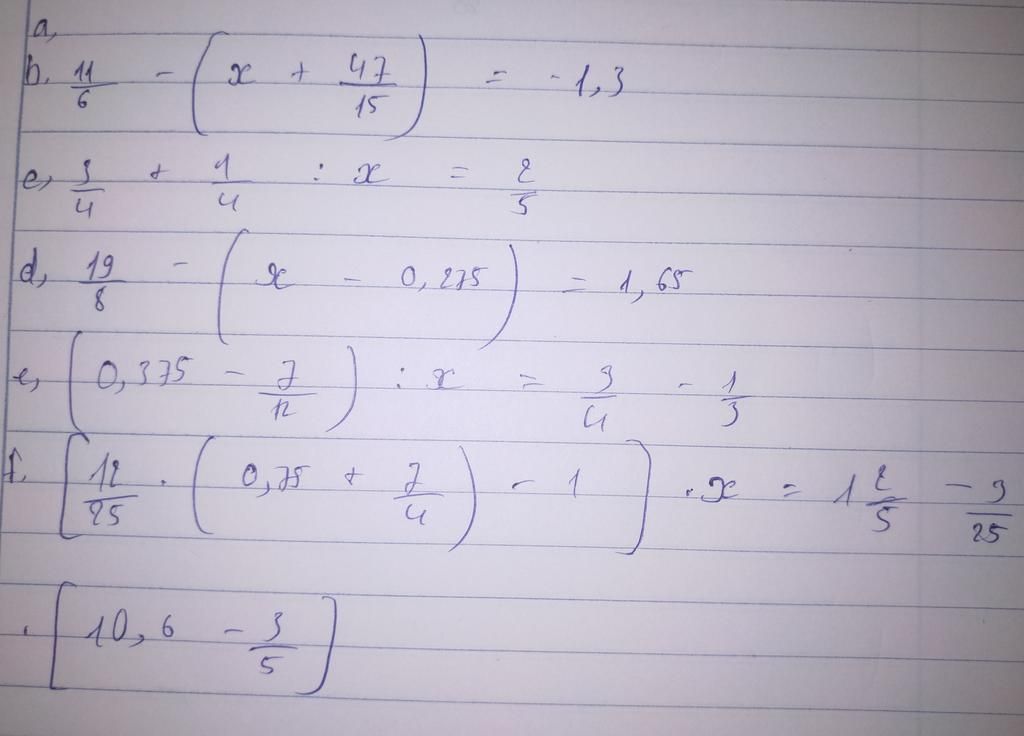 a,
b. 11/6 - (x + 47/15) = -1,3
c, 3/4 + 1/4 : x = 2/5
d, 19/8 - (x - 0,275) = 1,65
e, (0,375 - 7/12) : x = 3/4 - 1/3
f. [12/25 . (0,75 + 7/4) - 1] . x = 1 2/5 - 3/25
. [10,6 - 3/5]